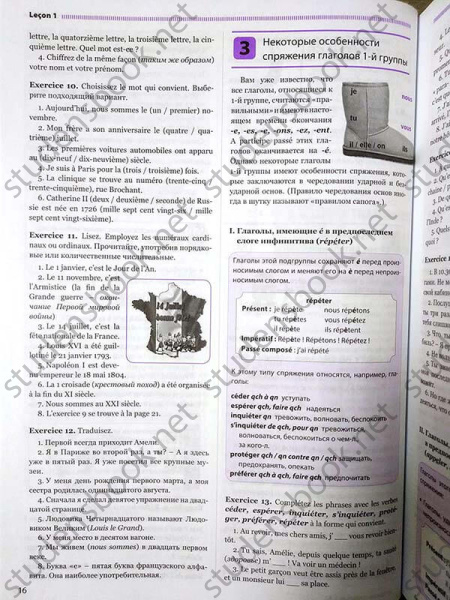 Leçon 1
lettre, la quatorzième lettre, la troisième lettre, la cin-
quième lettre. Quel mot est-ce ?
4. Chiffrez de la même façon (таким же образом)
votre nom et votre prénom.
Exercice 10. Choisissez le mot qui convient. Выбе-
рите подходящий вариант.
1. Aujourd'hui, nous sommes le (un / premier) no-
vembre.
2. Mon frère a son anniversaire le (quatre / qua-
trième) juillet.
3. Les premières voitures automobiles ont apparu
au (dix-neuf / dix-neuvième) siècle.
4. Je suis à Paris pour la (trois / troisième) fois.
5. La clinique se trouve au numéro (trente-cinq /
trente-cinquième), rue Brochant.
6. Catherine II (deux / deuxième / seconde) de Rus-
sie est née en 1726 (mille sept cent vingt-six / mille
sept cent vingt-sixième).
Exercice 11. Lisez. Employez les numéraux cardi-
naux ou ordinaux. Прочитайте, употребив порядко-
вые или количественные числительные.
1. Le 1 janvier, c'est le Jour de l'An.
2. Le 11 novembre, c'est
l'Armistice (la fin de la
Grande guerre - окон-
чание Первой мировой
войны)
3. Le 14 juillet, c'est la
fête nationale de la France.
4. Louis XVI a été guil-
lotiné le 21 janvier 1793.
5. Napoléon I est deve-
nu empereur le 18 mai 1804.
6. La 1 croisade (крестовый поход) a été organisée
à la fin du XI siècle.
7. Nous sommes au XXI siècle.
8. L'exercice 9 se trouve à la page 21.
Exercice 12. Traduisez.
1. Первой всегда приходит Амели.
2. Я в Париже во второй раз, а ты? – А я здесь
уже в пятый раз. Я уже посетила все крупные му-
зеи.
3. У меня день рождения первого марта, а моя
сестра родилась двадцатого августа.
4. Сначала я сделал девятое упражнение на двад-
цатой странице.
5. Людовика Четырнадцатого называют Людо-
виком Великим (Louis le Grand).
6. У меня место в десятом вагоне.
7. Мы живём (nous sommes) в двадцать первом
веке.
8. Буква «e» – пятая буква французского алфа-
вита. Она наиболее употребительная.
16
3 Некоторые особенности
спряжения глаголов 1-й группы
Вам уже известно, что
все глаголы, относящиеся к
1-й группе, считаются «пра-
вильными» и имеют в насто-
ящем времени окончания
-e, -es, -e, -ons, -ez, -ent.
А participe passé этих гла-
голов оканчивается на -é.
Но некоторые глаголы
1-й группы имеют особенности спряжения, кото-
рые заключаются в чередовании ударной и без-
ударной основ. (Правило чередования основ иног-
да в шутку называют «правилом сапога».)
je
nous
tu
vous
il / elle / on
ils
I. Глаголы, имеющие é в предпоследнем
слоге инфинитива (répéter)
Глаголы этой подгруппы сохраняют é перед произ-
носимым слогом и меняют его на è перед непроиз-
носимым слогом.
répéter
Présent : je répète nous répétons
tu répètes vous répétez
il répète ils répètent
Impératif : Répète ! Répétons ! Répétez !
Passé composé : j'ai répété
К этому типу спряжения относятся, например, гла-
голы:
céder qch à qn уступать
espérer qch, faire qch надеяться
inquiéter qn тревожить, волновать, беспокоить
s'inquiéter de qch, pour qn тревожиться,
волноваться, беспокоиться о чем-л.,
за кого-л.
protéger qch / qn contre qn / qch защищать,
предохранять, опекать
préférer qch à qch, faire qch предпочитать
Exercice 13. Complétez les phrases avec les verbes
céder, espérer, inquiéter, s'inquiéter, proté-
ger, préférer, répéter à la forme qui convient.
1. Au revoir, mes chers amis, j'___ vous revoir bien-
tôt.
2. Tu sais, Amélie, depuis quelque temps, ta santé
(здоровье) m'___ ! Va voir un médecin !
3. Le petit garçon veut être assis près de la fenêtre
et un monsieur lui ___ sa place.
studensbook.net